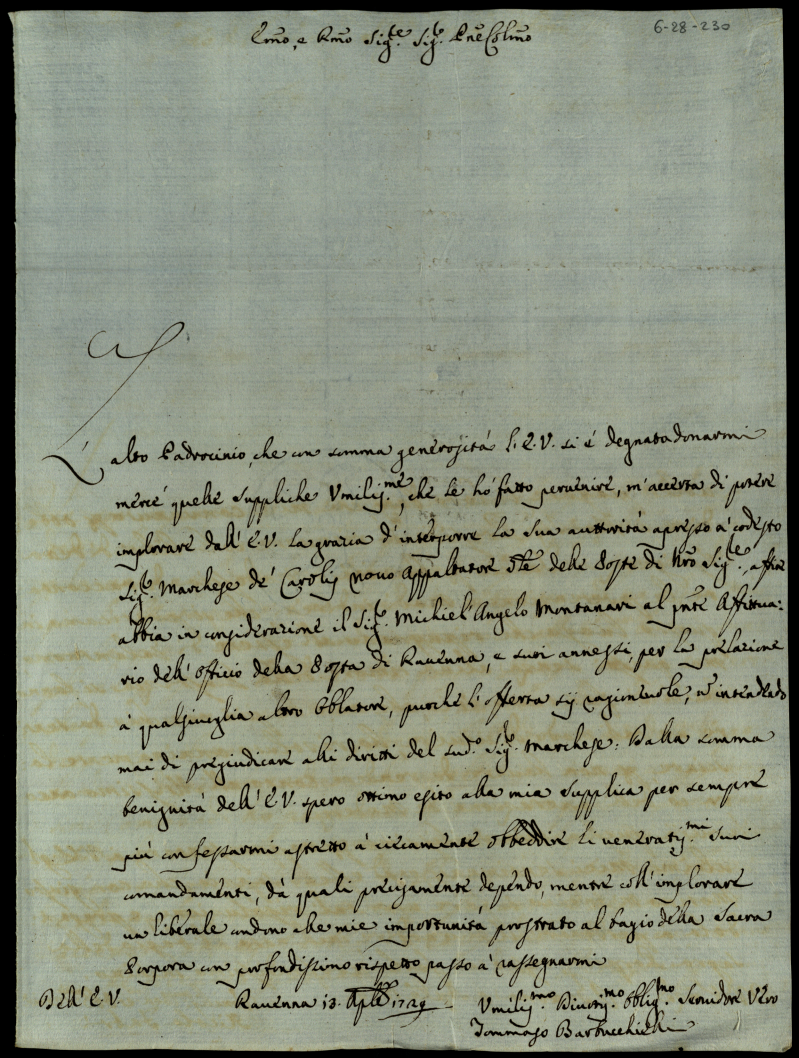 6-28-230
Emo, e Rmo Sig.re Sig.r Pne Colmo
L'alto Padrocinio, che con somma generosità l'E.V. si è degnata donarmi
mercè quelle suppliche Umiliss.me, che le hò fatto pervenire, m'accerta di potere
implorare dall' E.V. la grazia d'interporre la sua auttorità apresso à codesto
Sig.r Marchese de' Carolis novo Appaltatore delle Poste di Nro Sig.re, affine
abbia in considerazione il Sig.r Michiel' Angelo Montanari al pnte Affittua=
rio dell' Officio della Posta di Ravenna, e suoi annessi, per la prelazione
à qualsivoglia altro Oblatore, purche l'offerta sij ragionevole, nè intendendo
mai di pregiudicare alli diritti del sud.o Sig.r Marchese: Dalla somma
benignità dell' E.V. spero ottimo esito alla mia supplica per sempre
più confessarmi astretto à ciecamente obbeddire li veneratiss.mi suoi
comandamenti, dà quali precisamente dependo, mentre coll' implorare
un liberale condono alle mie importunità prostrato al bagio della Sacra
Porpora con profondissimo rispetto passo à rassegnarmi
Dell' E.V. Ravenna 13. Aple 1729 Umiliss.mo Divotiss.mo Obblig.mo Servidore Vero
Tommaso Barbucchielli